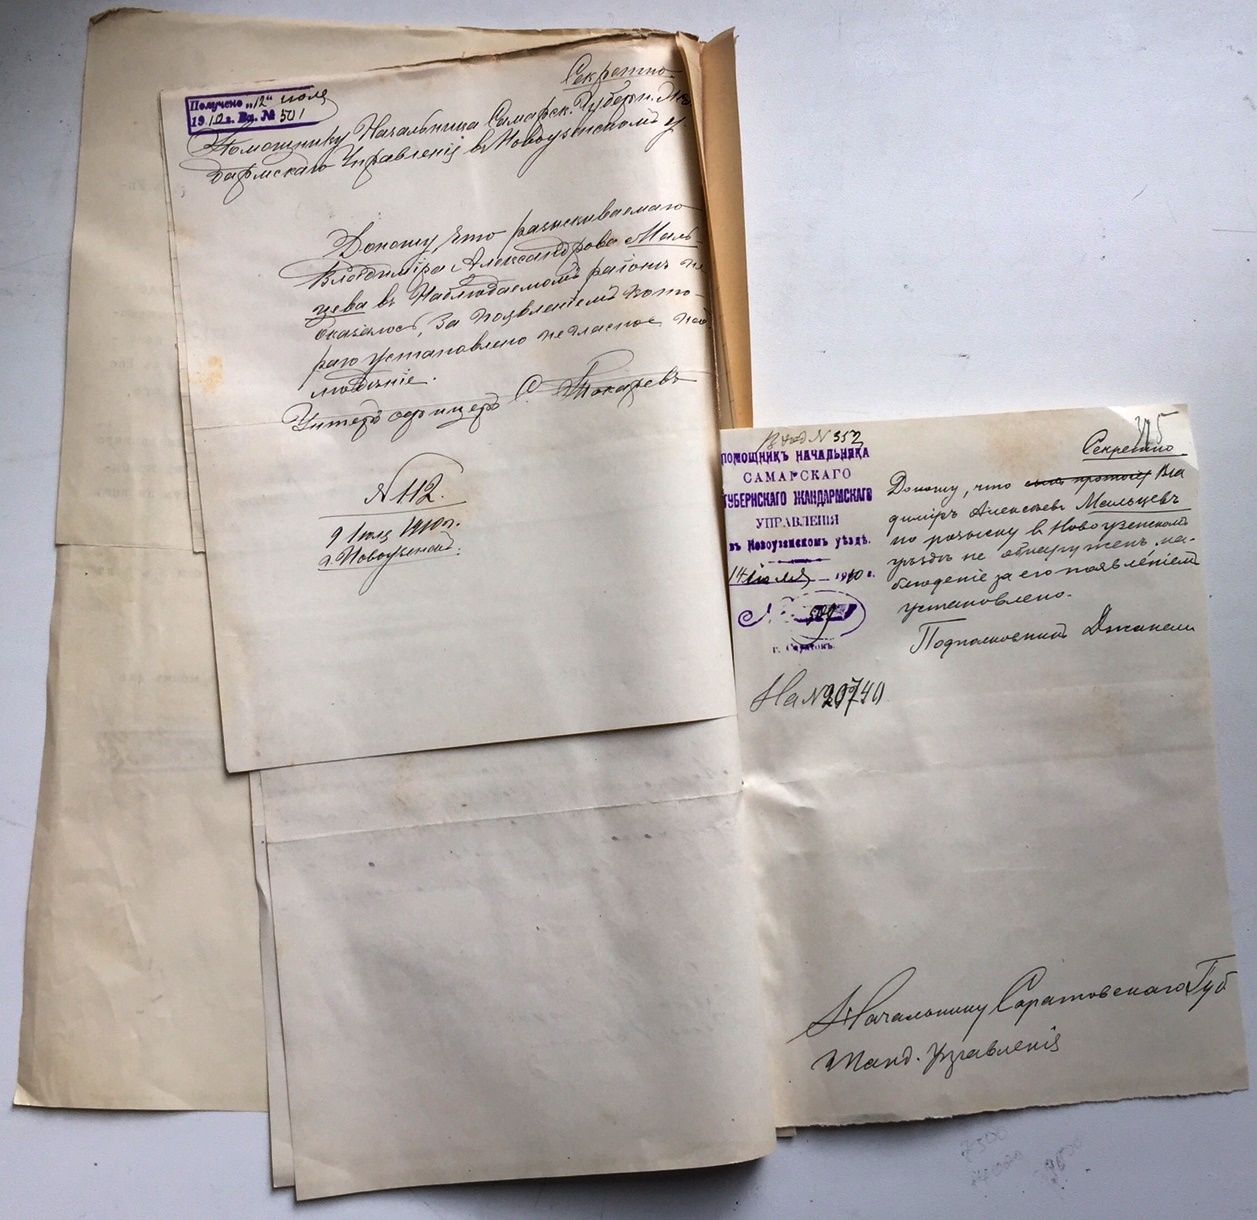 Секретно
Получено "12" июля
1910 г. Вх. № 501
Помощнику Начальника Самарск. Губерн. Жан
дармскаго Управленія въ Новоузенскомъ у.
Доношу что разыскиваемаго
Владиміра Александрова Маль-
цева въ Наблюдаемомъ районѣ не
оказалось, За появленіемъ кото-
раго установлено негласное наб
людѣніе.
Унтеръ офицеръ С Токаревъ
№ 112.
9 Июля 1910 г.
г. Новоузенскъ.
Вход № 352
ПОМОЩНИКЪ НАЧАЛЬНИКА
САМАРСКАГО
ГУБЕРНСКАГО ЖАНДАРМСКАГО
УПРАВЛЕНІЯ
въ Новоузенскомъ уѣздѣ.
14 июля 1910 г.
№ 509
г. Саратовъ
На № 20740
Секретно
Доношу, что Вла
диміръ Алексѣевъ Мальцевъ
по розыску въ Новоузенскомъ
уѣздѣ не обнаруженъ, на-
блюденіе за его появленіемъ
установлено.
Подполковникъ
Начальнику Саратовскаго Губ
Жанд. Управленія